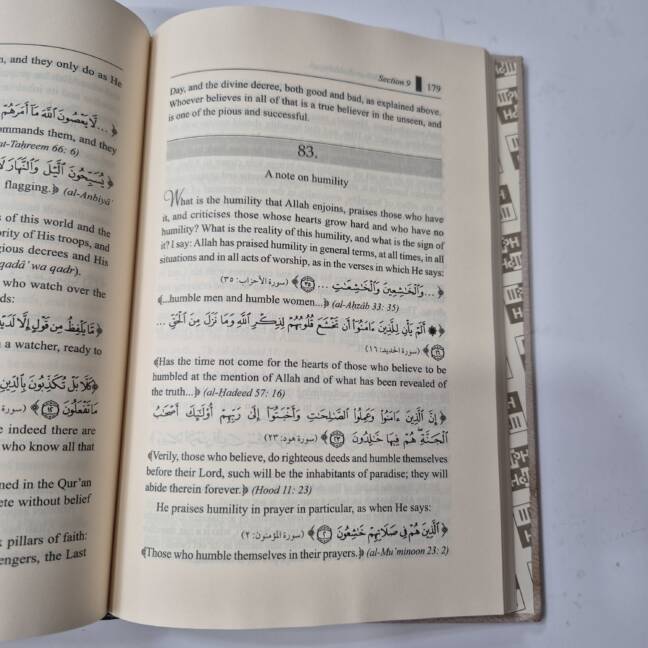 n, and they only do as He
﴿... لَا يَعْصُونَ ٱللَّهَ مَآ أَمَرَهُمْ
ommands them, and they
at-Taḥreem 66: 6)
﴿ يُسَبِّحُونَ ٱلَّيْلَ وَٱلنَّهَارَ لَا
flagging.﴾ (al-Anbiyâ'
s of this world and the
ority of His troops, and
gious decrees and His
qadâ' wa qadr).
who watch over the
ds:
﴿ مَّا يَلْفِظُ مِن قَوْلٍ إِلَّا لَدَيْهِ
a watcher, ready to
﴿ كَلَّا بَلْ تُكَذِّبُونَ بِٱلدِّينِ
مَا تَفْعَلُونَ ﴿١٢﴾ ﴾ (سورة
e indeed there are
who know all that
ned in the Qur'an
ete without belief
x pillars of faith:
engers, the Last
Section 9 179
Day, and the divine decree, both good and bad, as explained above.
Whoever believes in all of that is a true believer in the unseen, and
is one of the pious and successful.
83.
A note on humility
What is the humility that Allah enjoins, praises those who have
it, and criticises those whose hearts grow hard and who have no
humility? What is the reality of this humility, and what is the sign of
it? I say: Allah has praised humility in general terms, at all times, in all
situations and in all acts of worship, as in the verses in which He says:
﴿ ... وَٱلْخَٰشِعِينَ وَٱلْخَٰشِعَٰتِ ... ﴿٣٥﴾ ﴾ (سورة الأحزاب: ٣٥)
﴾...humble men and humble women...﴿ (al-Aḥzâb 33: 35)
﴿ ۞ أَلَمْ يَأْنِ لِلَّذِينَ ءَامَنُوٓا۟ أَن تَخْشَعَ قُلُوبُهُمْ لِذِكْرِ ٱللَّهِ وَمَا نَزَلَ مِنَ ٱلْحَقِّ ...
﴿١٦﴾ ﴾ (سورة الحديد: ١٦)
﴾Has the time not come for the hearts of those who believe to be
humbled at the mention of Allah and of what has been revealed of
the truth...﴿ (al-Ḥadeed 57: 16)
﴿ إِنَّ ٱلَّذِينَ ءَامَنُوا۟ وَعَمِلُوا۟ ٱلصَّٰلِحَٰتِ وَأَخْبَتُوٓا۟ إِلَىٰ رَبِّهِمْ أُو۟لَٰٓئِكَ أَصْحَٰبُ
ٱلْجَنَّةِ هُمْ فِيهَا خَٰلِدُونَ ﴿٢٣﴾ ﴾ (سورة هود: ٢٣)
﴾Verily, those who believe, do righteous deeds and humble themselves
before their Lord, such will be the inhabitants of paradise; they will
abide therein forever.﴿ (Hood 11: 23)
He praises humility in prayer in particular, as when He says:
﴿ ٱلَّذِينَ هُمْ فِى صَلَاتِهِمْ خَٰشِعُونَ ﴿٢﴾ ﴾ (سورة المؤمنون: ٢)
﴾Those who humble themselves in their prayers.﴿ (al-Mu'minoon 23: 2)